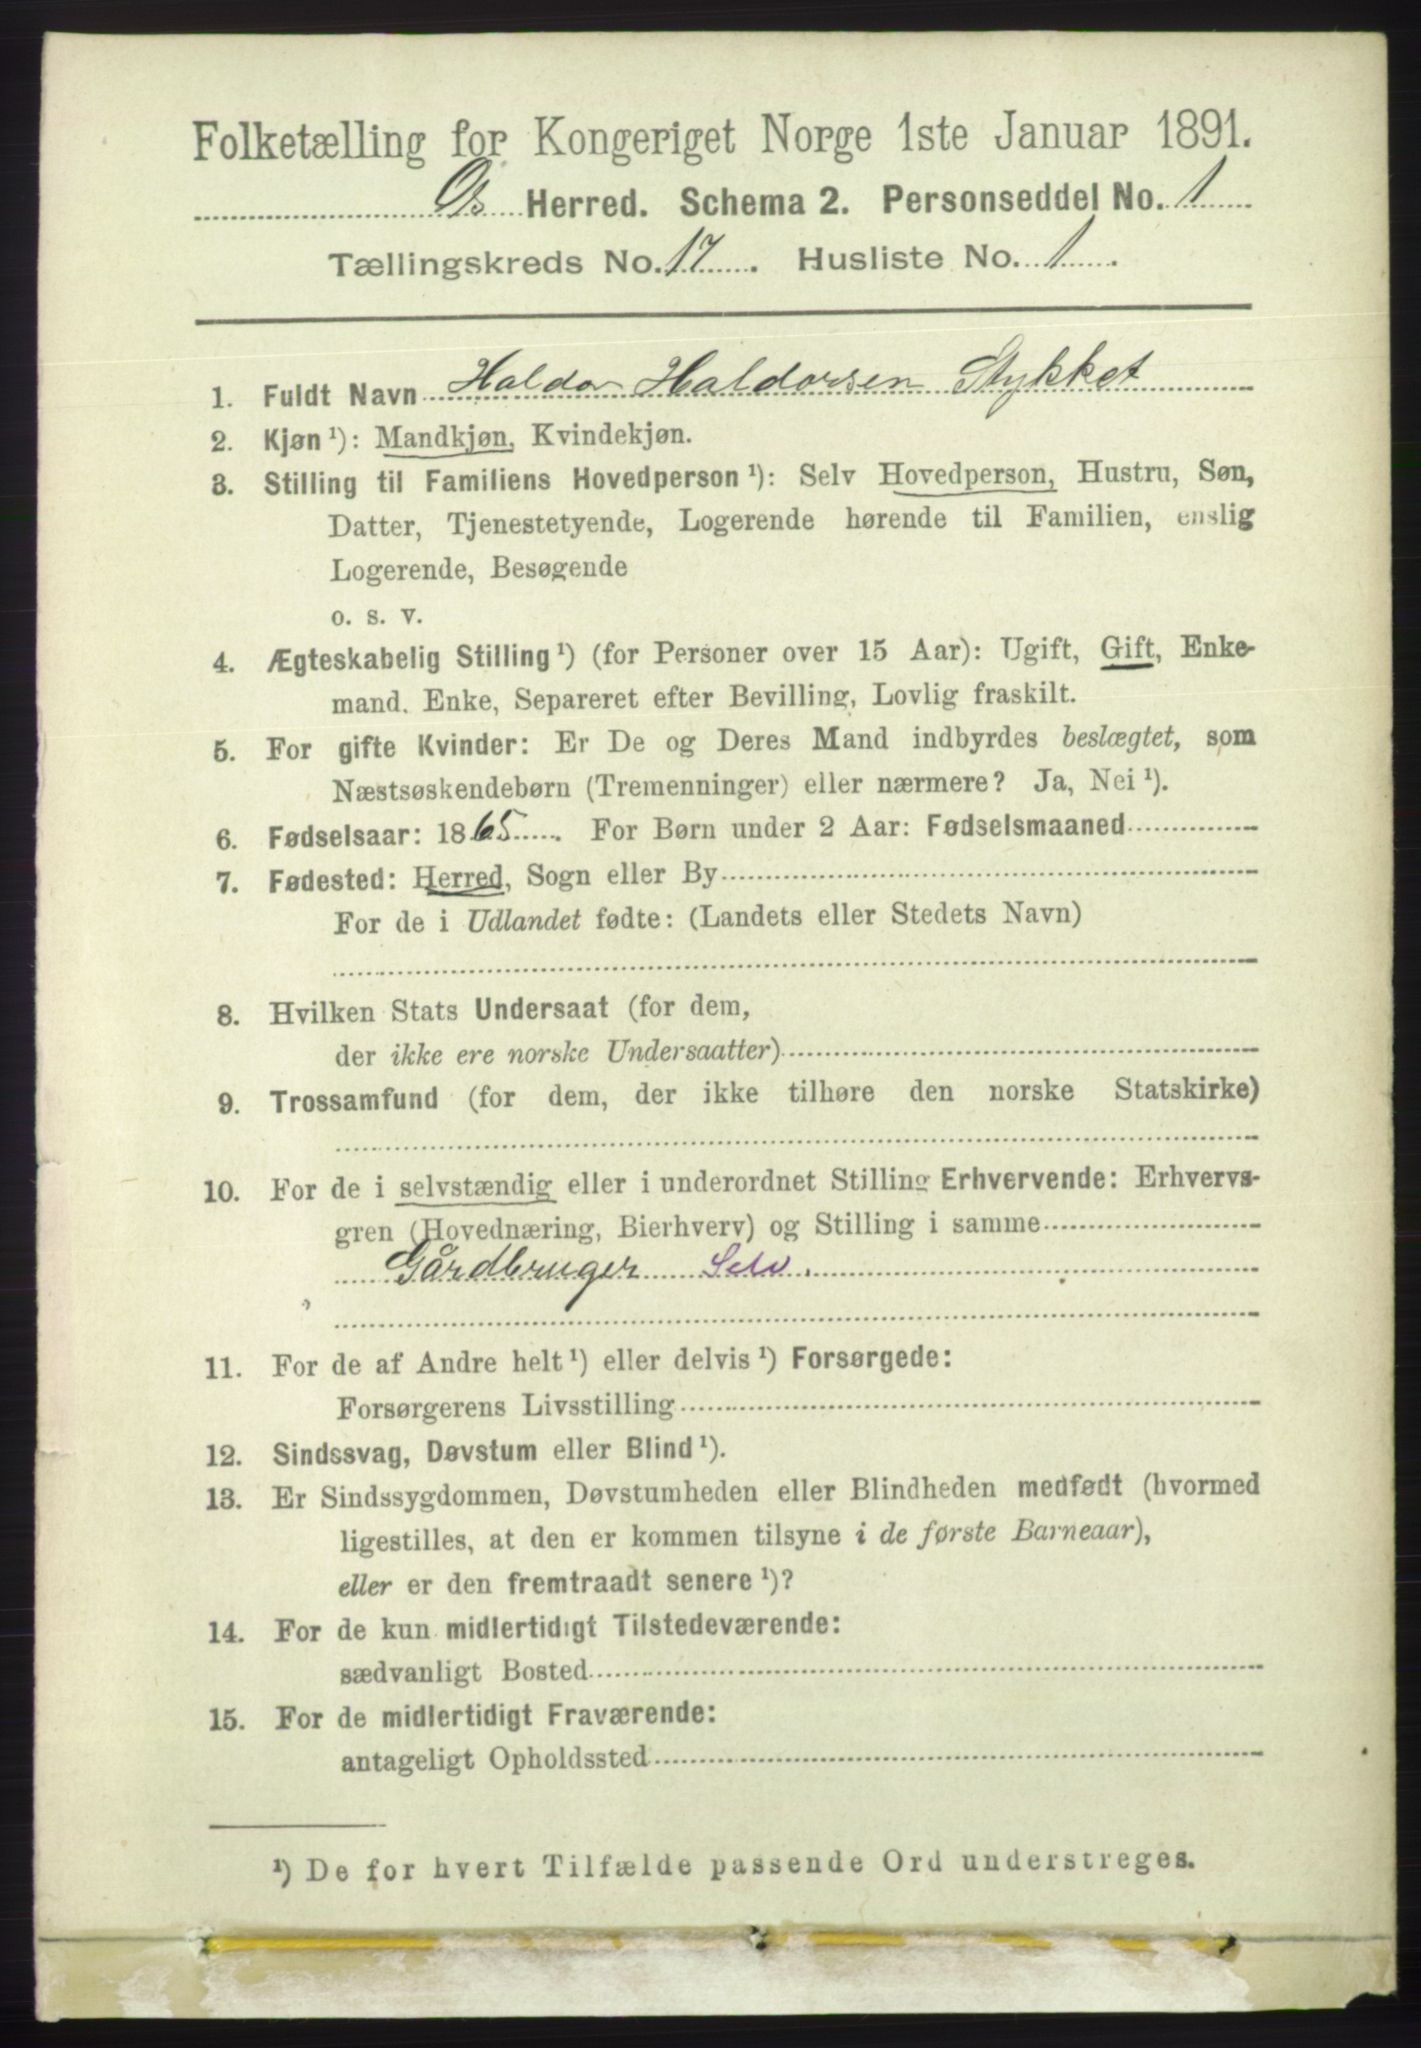 Folketælling for Kongeriget Norge 1ste Januar 1891.
Os Herred. Schema 2. Personseddel No. 1
Tællingskreds No. 17. Husliste No. 1.
1. Fuldt Navn Haldor Haldorsen Stykket
2. Kjøn ¹): Mandkjøn, Kvindekjøn.
3. Stilling til Familiens Hovedperson ¹): Selv Hovedperson, Hustru, Søn,
Datter, Tjenestetyende, Logerende hørende til Familien, enslig
Logerende, Besøgende
o. s. v.
4. Ægteskabelig Stilling ¹) (for Personer over 15 Aar): Ugift, Gift, Enke-
mand. Enke, Separeret efter Bevilling, Lovlig fraskilt.
5. For gifte Kvinder: Er De og Deres Mand indbyrdes beslægtet, som
Næstsøskendebørn (Tremenninger) eller nærmere? Ja, Nei ¹).
6. Fødselsaar: 1865. For Børn under 2 Aar: Fødselsmaaned
7. Fødested: Herred, Sogn eller By
For de i Udlandet fødte: (Landets eller Stedets Navn)
8. Hvilken Stats Undersaat (for dem,
der ikke ere norske Undersaatter)
9. Trossamfund (for dem, der ikke tilhøre den norske Statskirke)
10. For de i selvstændig eller i underordnet Stilling Erhvervende: Erhvervs-
gren (Hovednæring, Bierhverv) og Stilling i samme
Gårdbruger Selv.
11. For de af Andre helt ¹) eller delvis ¹) Forsørgede:
Forsørgerens Livsstilling
12. Sindssvag, Døvstum eller Blind ¹).
13. Er Sindssygdommen, Døvstumheden eller Blindheden medfødt (hvormed
ligestilles, at den er kommen tilsyne i de første Barneaar),
eller er den fremtraadt senere ¹)?
14. For de kun midlertidigt Tilstedeværende:
sædvanligt Bosted
15. For de midlertidigt Fraværende:
antageligt Opholdssted
¹) De for hvert Tilfælde passende Ord understreges.